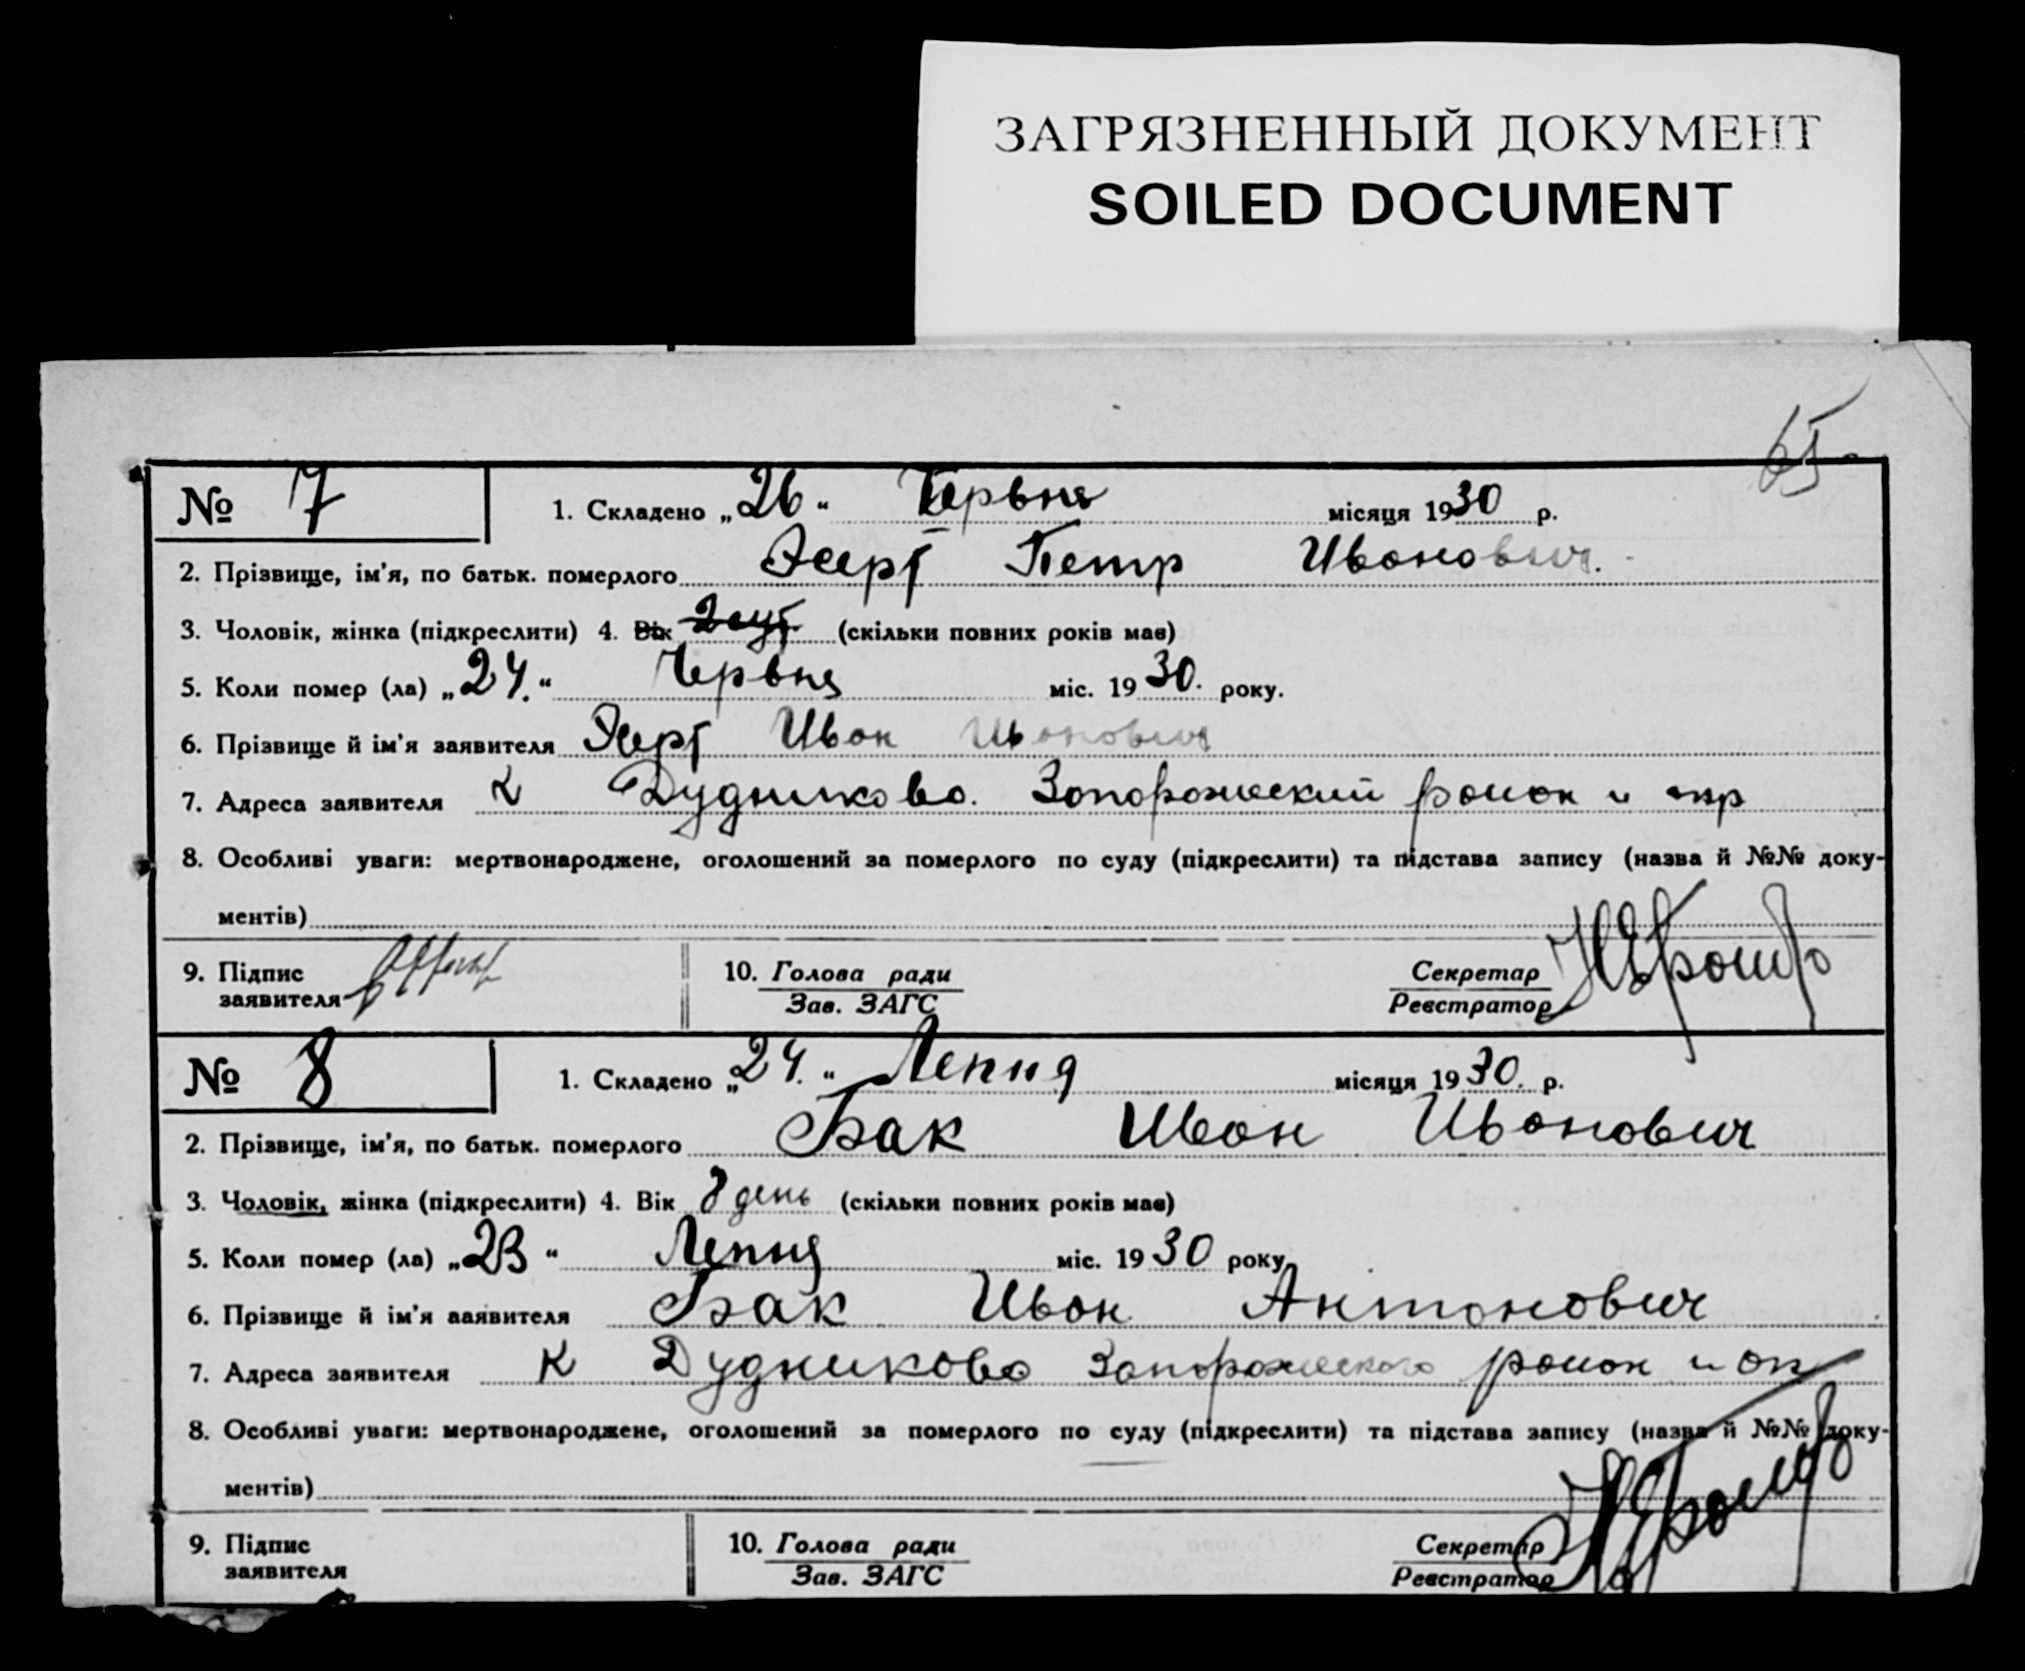 ЗАГРЯЗНЕННЫЙ ДОКУМЕНТ
SOILED DOCUMENT
65
№ 7 1. Складено „26“ Червня місяця 1930 р.
2. Прізвище, ім'я, по батьк. померлого Петр Иванович.
3. Чоловік, жінка (підкреслити) 4. Вік (скільки повних років має)
5. Коли помер (ла) „24.“ Червня міс. 1930. року.
6. Прізвище й ім'я заявителя Иван Иванович
7. Адреса заявителя К Дудниково. Запорожский район и окр
8. Особливі уваги: мертвонароджене, оголошений за померлого по суду (підкреслити) та підстава запису (назва й №№ доку-
ментів)
9. Підпис заявителя 10. Голова ради Секретар
Зав. ЗАГС Реєстратор
№ 8 1. Складено „24.“ Липня місяця 1930. р.
2. Прізвище, ім'я, по батьк. померлого Бак Иван Иванович
3. Чоловік, жінка (підкреслити) 4. Вік день (скільки повних років має)
5. Коли помер (ла) „23“ Липня міс. 1930 року
6. Прізвище й ім'я заявителя Бак Иван Антонович
7. Адреса заявителя К Дудниково Запорожского район и ок
8. Особливі уваги: мертвонароджене, оголошений за померлого по суду (підкреслити) та підстава запису (назва й №№ доку-
ментів)
9. Підпис заявителя 10. Голова ради Секретар
Зав. ЗАГС Реєстратор